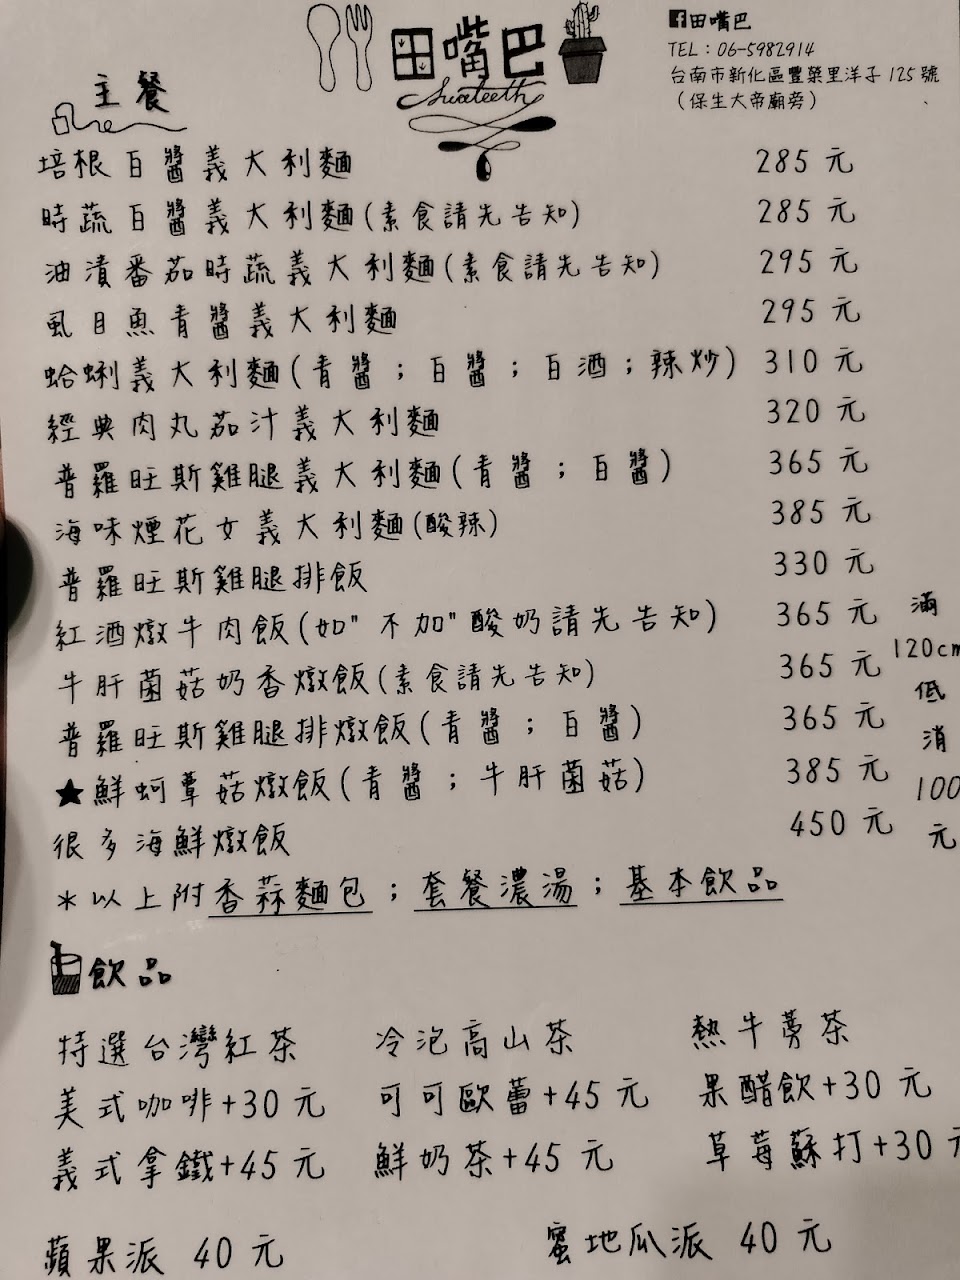 田嘴巴
Suateeth
田嘴巴
TEL：06-5982914
台南市新化區豐榮里洋子125號
（保生大帝廟旁）
主餐
培根白醬義大利麵 285元
時蔬白醬義大利麵(素食請先告知) 285元
油漬番茄時蔬義大利麵(素食請先告知) 295元
虱目魚青醬義大利麵 295元
蛤蜊義大利麵(青醬；白醬；白酒；辣炒) 310元
經典肉丸茄汁義大利麵 320元
普羅旺斯雞腿義大利麵(青醬；白醬) 365元
海味煙花女義大利麵(酸辣) 385元
普羅旺斯雞腿排飯 330元
紅酒燉牛肉飯(如"不加"酸奶請先告知) 365元
牛肝菌菇奶香燉飯(素食請先告知) 365元
普羅旺斯雞腿排燉飯(青醬；白醬) 365元
★鮮蚵蕈菇燉飯(青醬；牛肝菌菇) 385元
很多海鮮燉飯 450元
滿
120cm
低
消
100
元
*以上附香蒜麵包；套餐濃湯；基本飲品
飲品
特選台灣紅茶 冷泡高山茶 熱牛蒡茶
美式咖啡+30元 可可歐蕾+45元 果醋飲+30元
義式拿鐵+45元 鮮奶茶+45元 草莓蘇打+30元
蘋果派 40元 蜜地瓜派 40元